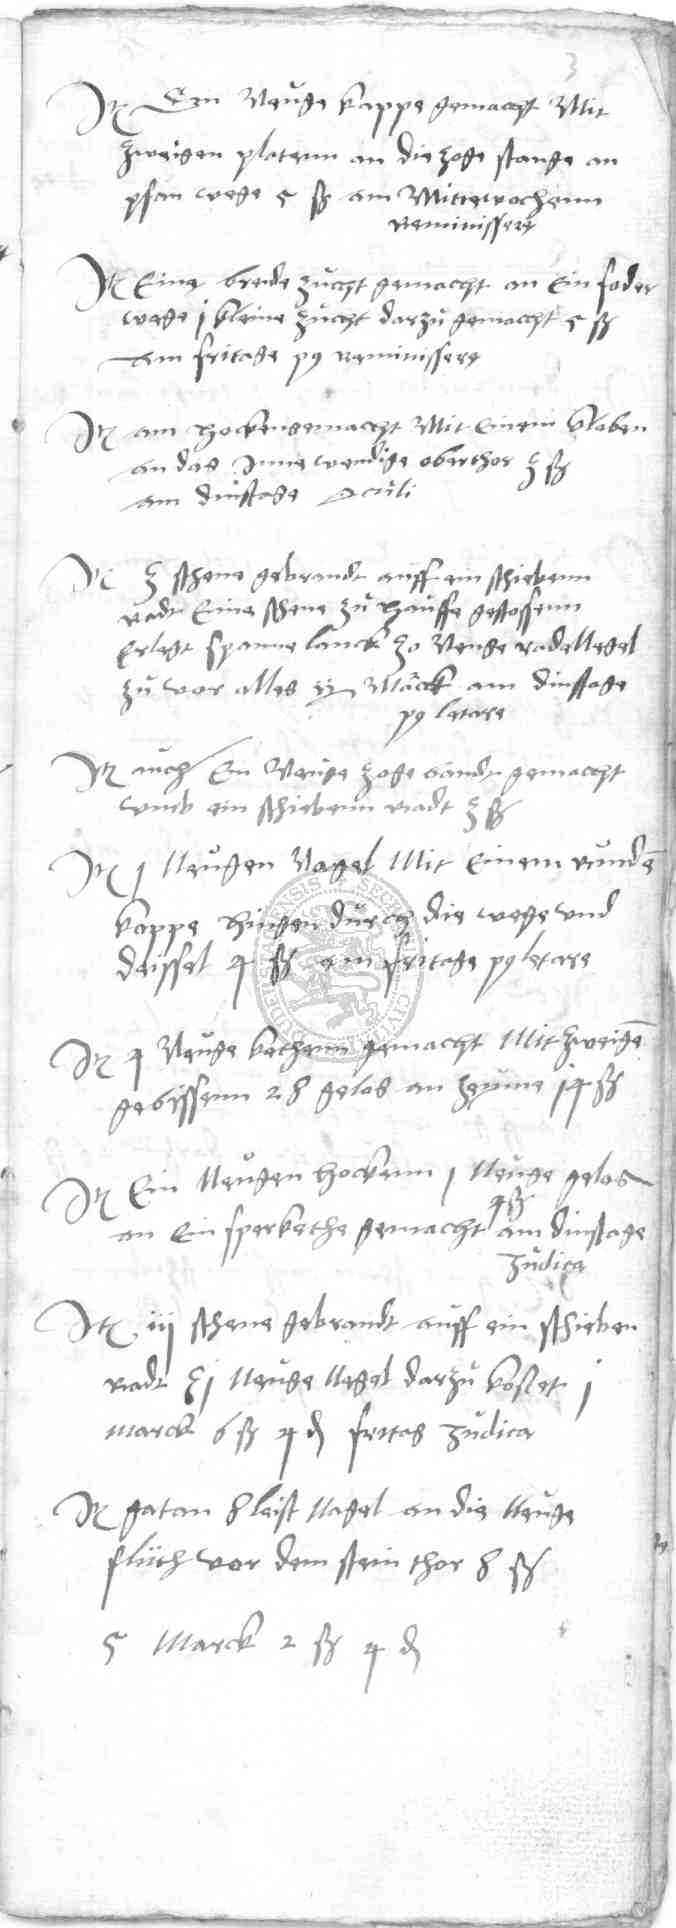 3
Itē Ein Neuge kappe gemacht Mit
zweigen platenn an die zoge stange an
pfan wege 5 ß am Mittewochenn
Reminissere
Itē Eine breide zucht gemacht an Ein foder
wege j kleine zucht darzu gemacht 5 ß
am fritage p9 Reminissere
Itē ain hocken gemacht Mit Einem kloben
an das Innewendige oberthor 3 ß
am dinstage Oculi
Itē 3 schene gebrandt auff ein schiebenn
radt Eine schene zu hauffe gestossenn
Erlegt spanne lanck 30 Neuge radellegel
zu vor alles Marck am dinstage
p9 letare
Itē auch Ein Neuge zoge bandt gemacht
umb ein schiebenn radt 3 ß
Itē j Neugen Nagel Mit Einem rundē
kappe hingen durch die wege und
deissel 4 ß am fritage p9 letare
Itē 4 Neuge kethenn gemacht Mit zweigē
gebissenn 28 gelos an zeume j4 ß
Itē Ein Neugen hockenn j Neuge gelos
4 ß
an Ein sperkethe gemacht am dinstage
Judica
Itē iij schene gebrandt auff ein schieben
radt 3j Neuge Negel darzu kostet j
marck 6 ß 4 d fritag Judica
Itē gatan 8 leist Nagel an die Neuge
fluth vor dem stein thor 8 ß
5 Marck 2 ß 4 d